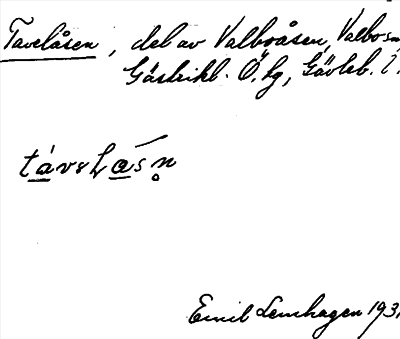 Tavelåsen, del av Valboåsen, Valbo sn
Gästrikl. Ö. tg, Gävleb. l.
Emil Lenhagen 193